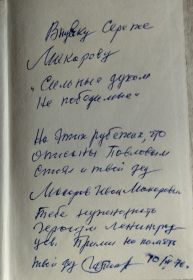 Внуку Сереже
Макарову
"Сильные духом
Не победимы"
На этих рубежах, что
описаны Павловым
стоял и твой дед
Макаров Иван Макарович
Тебе нужно знать
героизм Ленинград
цев. Прими на память
твой дед